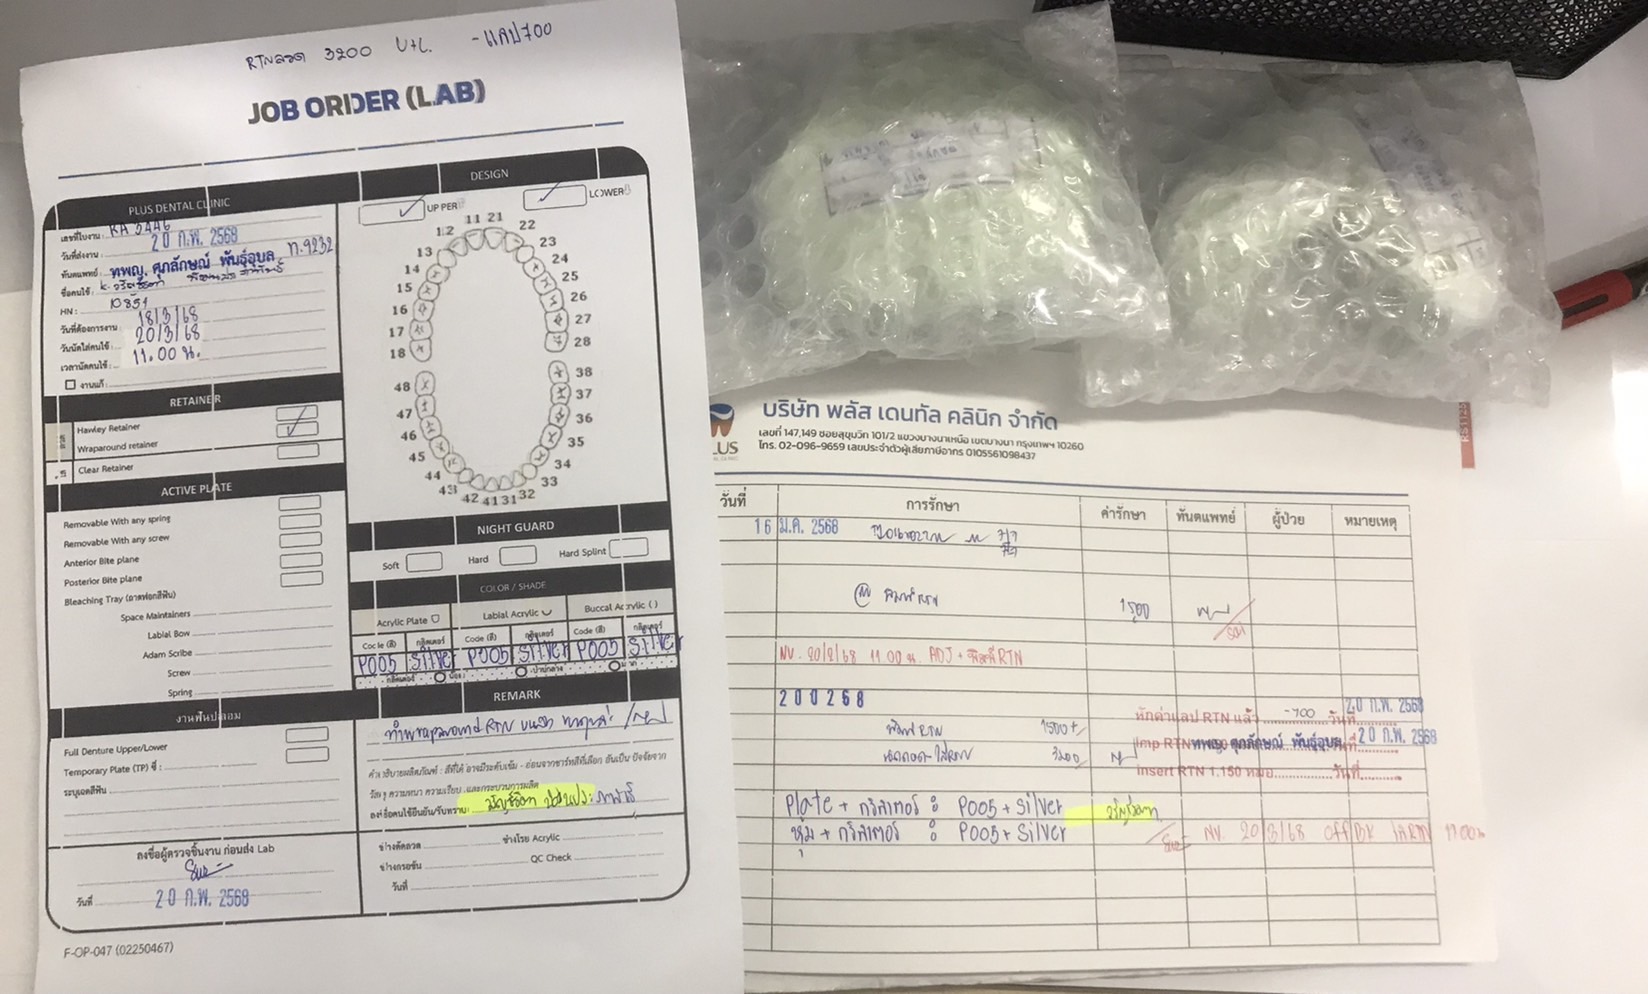 RTNลวด 3200 U+L. -แลป700
JOB ORDER (LAB)
PLUS DENTAL CLINIC
เลขที่ใบงาน: KA 5446
วันที่ส่งงาน: 20 ก.พ. 2568
ทันตแพทย์: ทพญ. ศุภลักษณ์ พันธุ์อุบล ท.9232
ชื่อคนไข้: K.
HN: 10851
วันที่ต้องการงาน: 18/3/68
วันนัดใส่คนไข้: 20/3/68
เวลานัดคนไข้: 11.00 น.
งานแก้:
RETAINER
Hawley Retainer
Wraparound retainer
Clear Retainer
ACTIVE PLATE
Removable With any spring
Removable With any screw
Anterior Bite plane
Posterior Bite plane
Bleaching Tray (ถาดฟอกสีฟัน)
Space Maintainers
Labial Bow
Adam Scribe
Screw
Spring
งานฟันปลอม
Full Denture Upper/Lower
Temporary Plate (TP) ซี่:
ระบุเฉดสีฟัน
ลงชื่อผู้ตรวจชิ้นงาน ก่อนส่ง Lab
วันที่ 20 ก.พ. 2568
F-OP-047 (02250467)
DESIGN
UPPER LOWER
11 21
12 22
13 23
14 24
15 25
16 26
17 27
18 28
48 38
47 37
46 36
45 35
44 34
43 33
42 41 31 32
NIGHT GUARD
Soft Hard Hard Splint
COLOR / SHADE
Acrylic Plate Labial Acrylic Buccal Acrylic ( )
Code (สี) กลิตเตอร์ Code (สี) กลิตเตอร์ Code (สี) กลิตเตอร์
P005 Silver P005 Silver P005 Silver
กลิตเตอร์ น้อย ปานกลาง มาก
REMARK
ทำ wraparound RTN
คำอธิบายผลิตภัณฑ์ : สีที่ได้ อาจมีระดับเข้ม - อ่อนจากชาร์ทสีที่เลือก อันเป็น ปัจจัยจาก
วัสดุ ความหนา ความเรียบ และกระบวนการผลิต
ลงชื่อคนไข้ยืนยัน/รับทราบ:
ช่างดัดลวด ช่างโรย Acrylic
ช่างกรอขัด QC Check
วันที่
บริษัท พลัส เดนทัล คลินิก จำกัด
เลขที่ 147,149 ซอยสุขุมวิท 101/2 แขวงบางนาเหนือ เขตบางนา กรุงเทพฯ 10260
โทร. 02-096-9659 เลขประจำตัวผู้เสียภาษีอากร 0105561098437
วันที่ การรักษา ค่ารักษา ทันตแพทย์ ผู้ป่วย หมายเหตุ
16 ม.ค. 2568
พิมพ์ RTN 1500
NV. 20/2/68 11.00 น. ADJ + พิมพ์ RTN
200268 20 ก.พ. 2568
หักค่าแลป RTN แล้ว -700 วันที่
พิมพ์ RTN 1500
Imp RTN ทพญ. ศุภลักษณ์ พันธุ์อุบล วันที่ 20 ก.พ. 2568
3200
insert RTN 1,150 หมอ วันที่
Plate + กริสเตอร์ : P005 + Silver
หุ้ม + กริสเตอร์ : P005 + Silver
NV 20/3/68 off BK